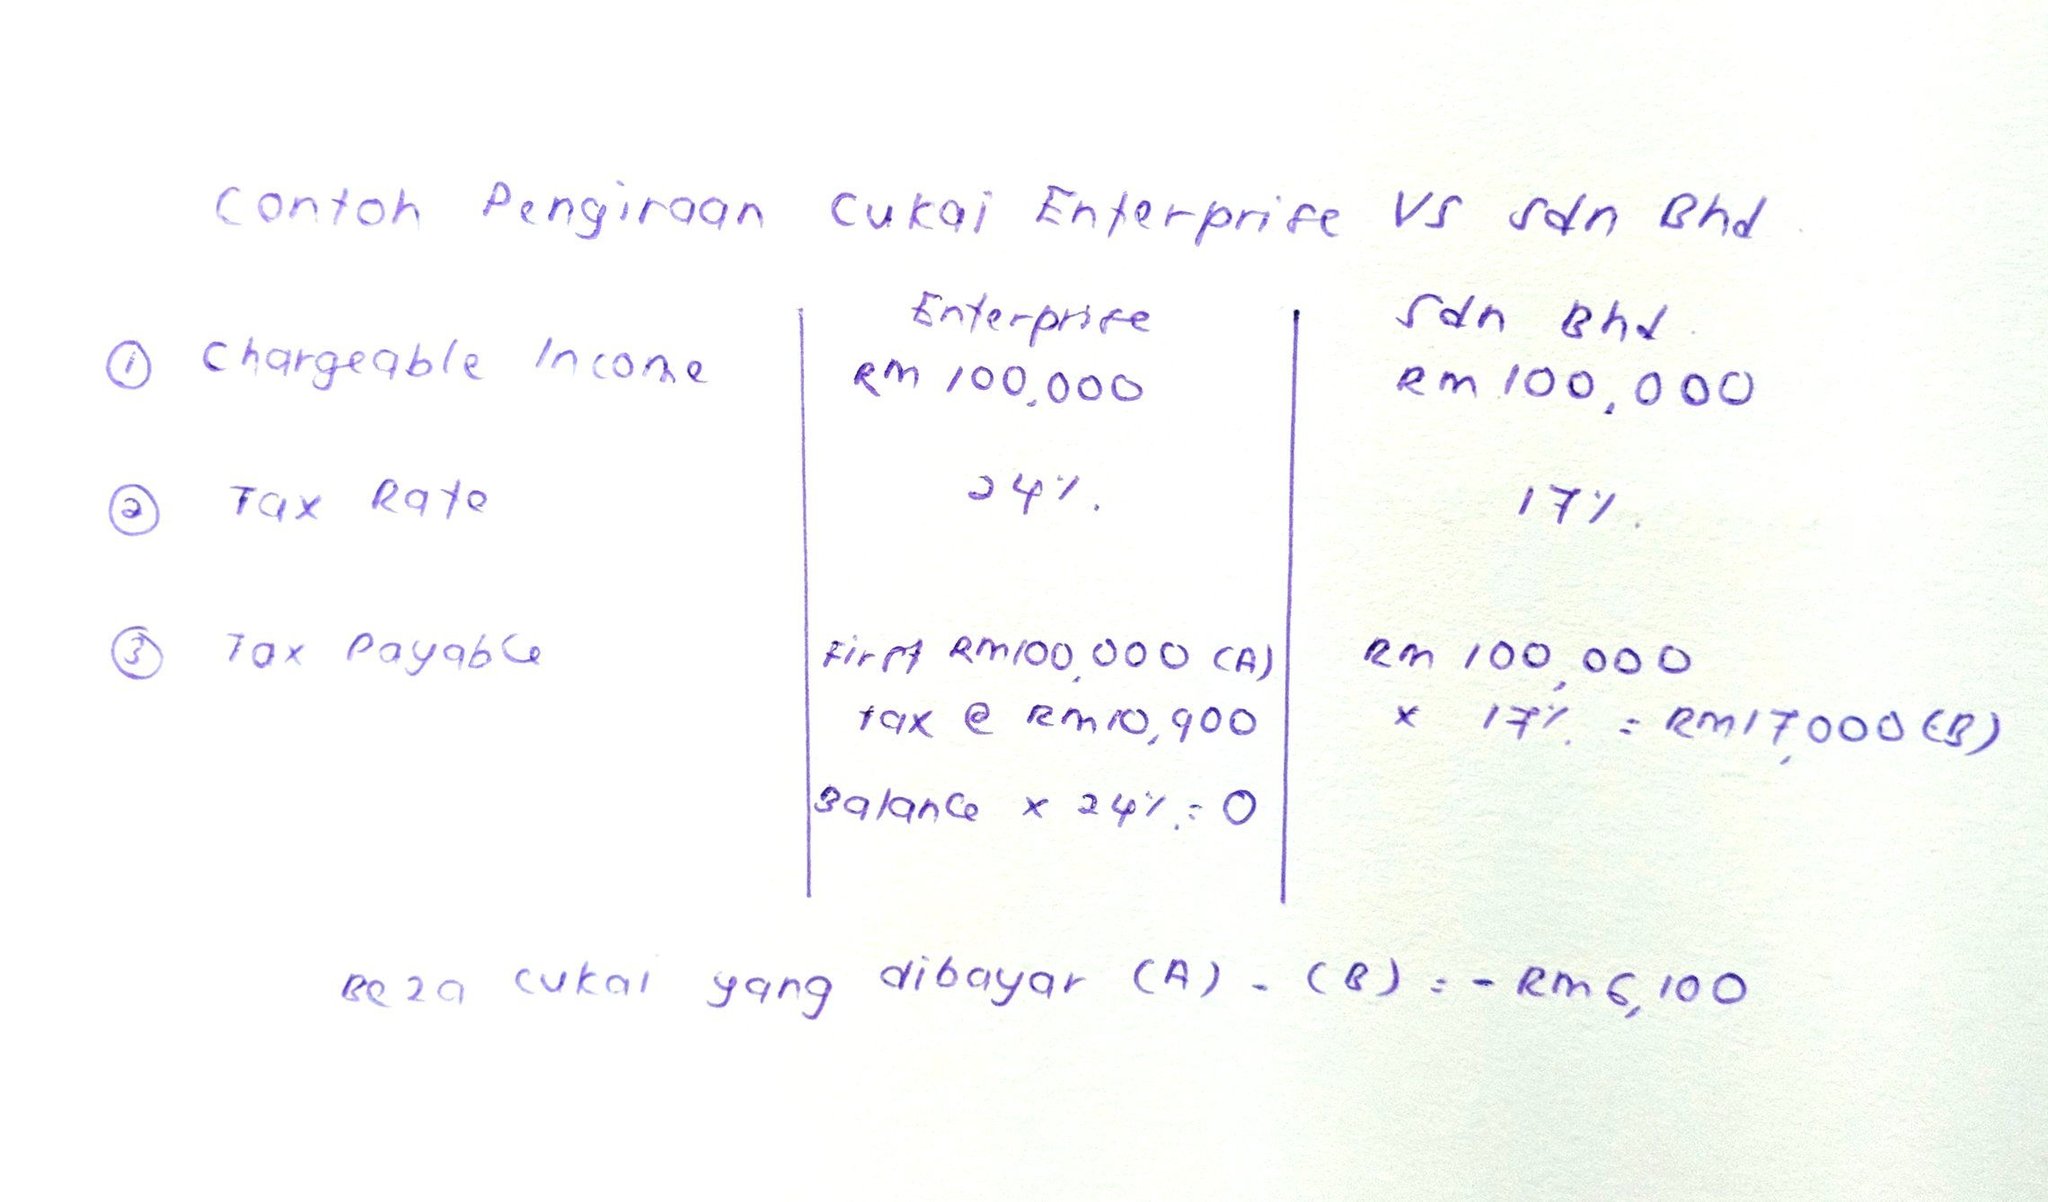 Contoh Pengiraan Cukai Enterprise VS Sdn Bhd.
Enterprise Sdn Bhd.
① Chargeable Income RM 100,000 RM 100,000
② Tax Rate 24%. 17%.
③ Tax Payable First RM100,000 (A) RM 100,000
tax @ RM10,900 x 17%. = RM17,000 (B)
Balance x 24%. = 0
Beza cukai yang dibayar (A) - (B) = - RM6,100